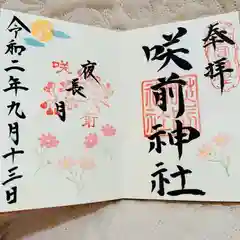 奉拝
咲前神社
夜長月
咲
前
令和二年九月十三日